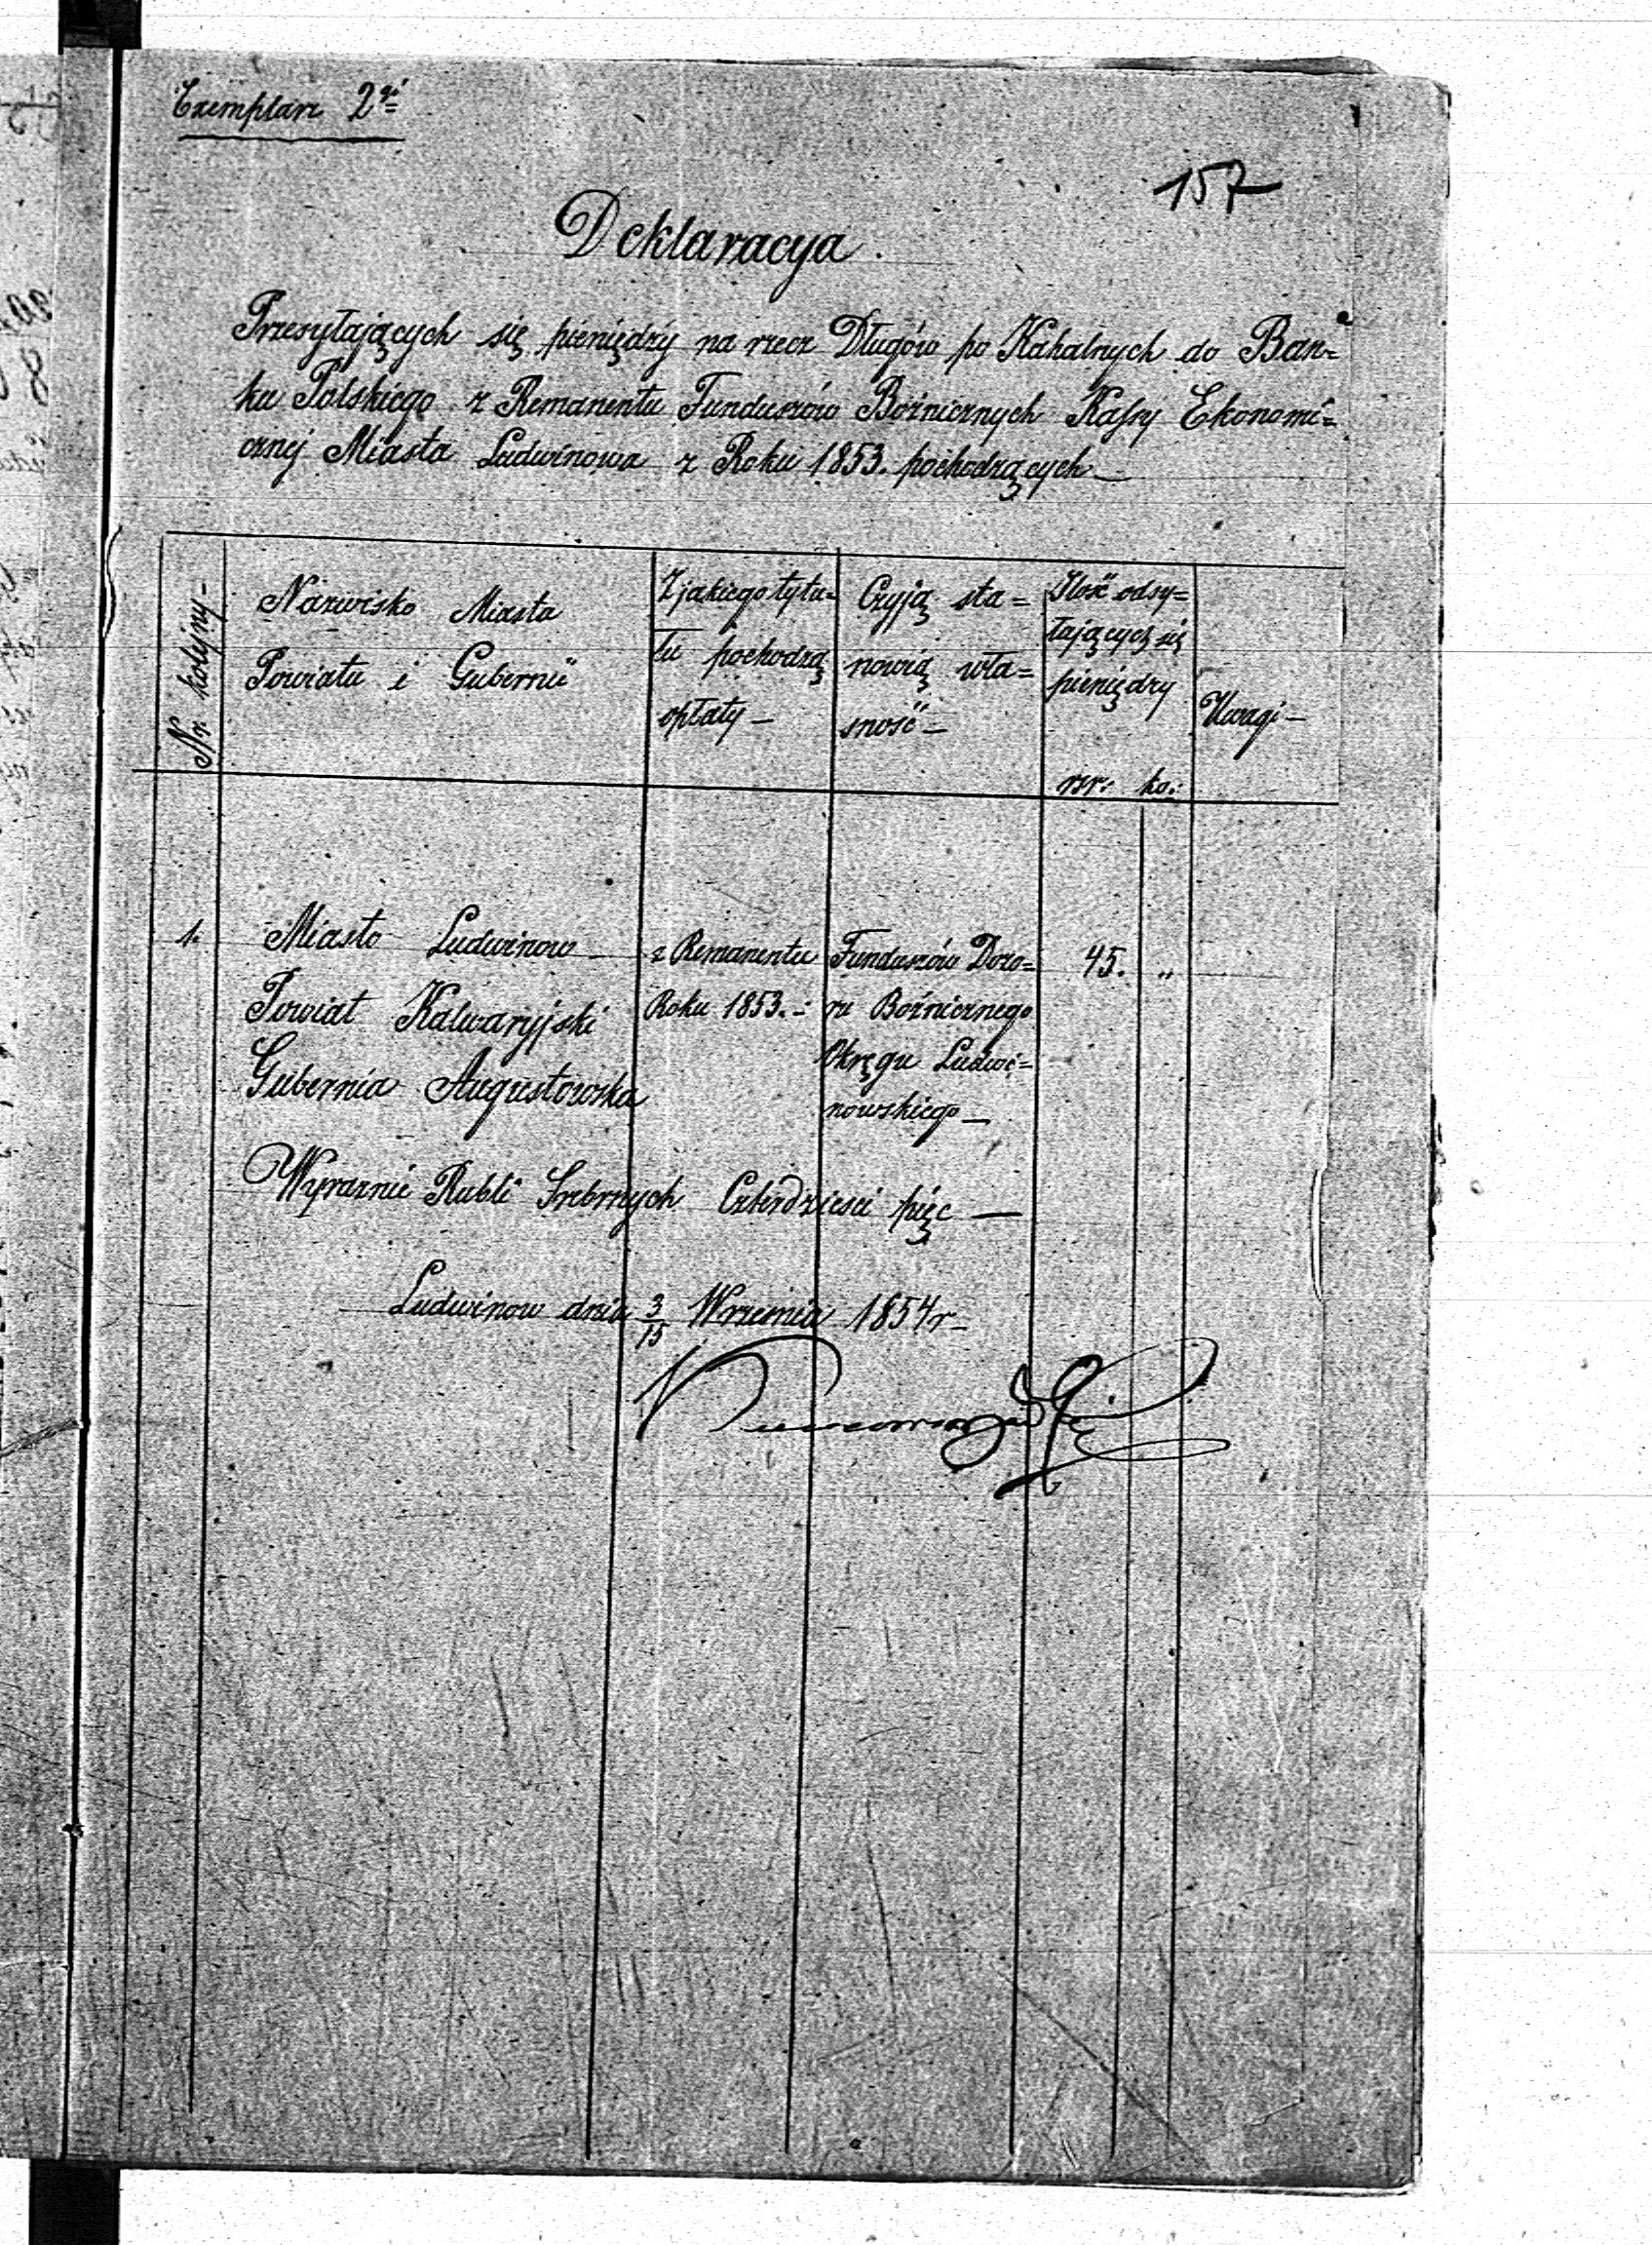 Exemplarz 2gi
157
Deklaracya.
Przesyłających się pieniędzy na rzecz Długów po Kahalnych do Ban=
ku Polskiego z Remanentu Funduszów Bożnicznych Kassy Ekonomi=
cznej Miasta Ludwinowa z Roku 1853. pochodzących —
Nr. kolejny —
Nazwisko Miasta
Powiatu i Gubernii
Z jakiego tytu=
łu pochodzą
opłaty —
Czyją sta=
nowią wła=
sność —
Ilość odsy=
łających się
pieniędzy
rsr: ko:
Uwagi —
1.
Miasto Ludwinow —
Powiat Kalwaryjski
Gubernia Augustowska
z Remanentu
Roku 1853. -:
Funduszów Dozo=
ru Bożnicznego
Okręgu Ludwi=
nowskiego —
45. „
Wyraznie Rubli Srebrnych Czterdziesci pięc —
Ludwinow dnia 3/15 Wrzesnia 1854 r —